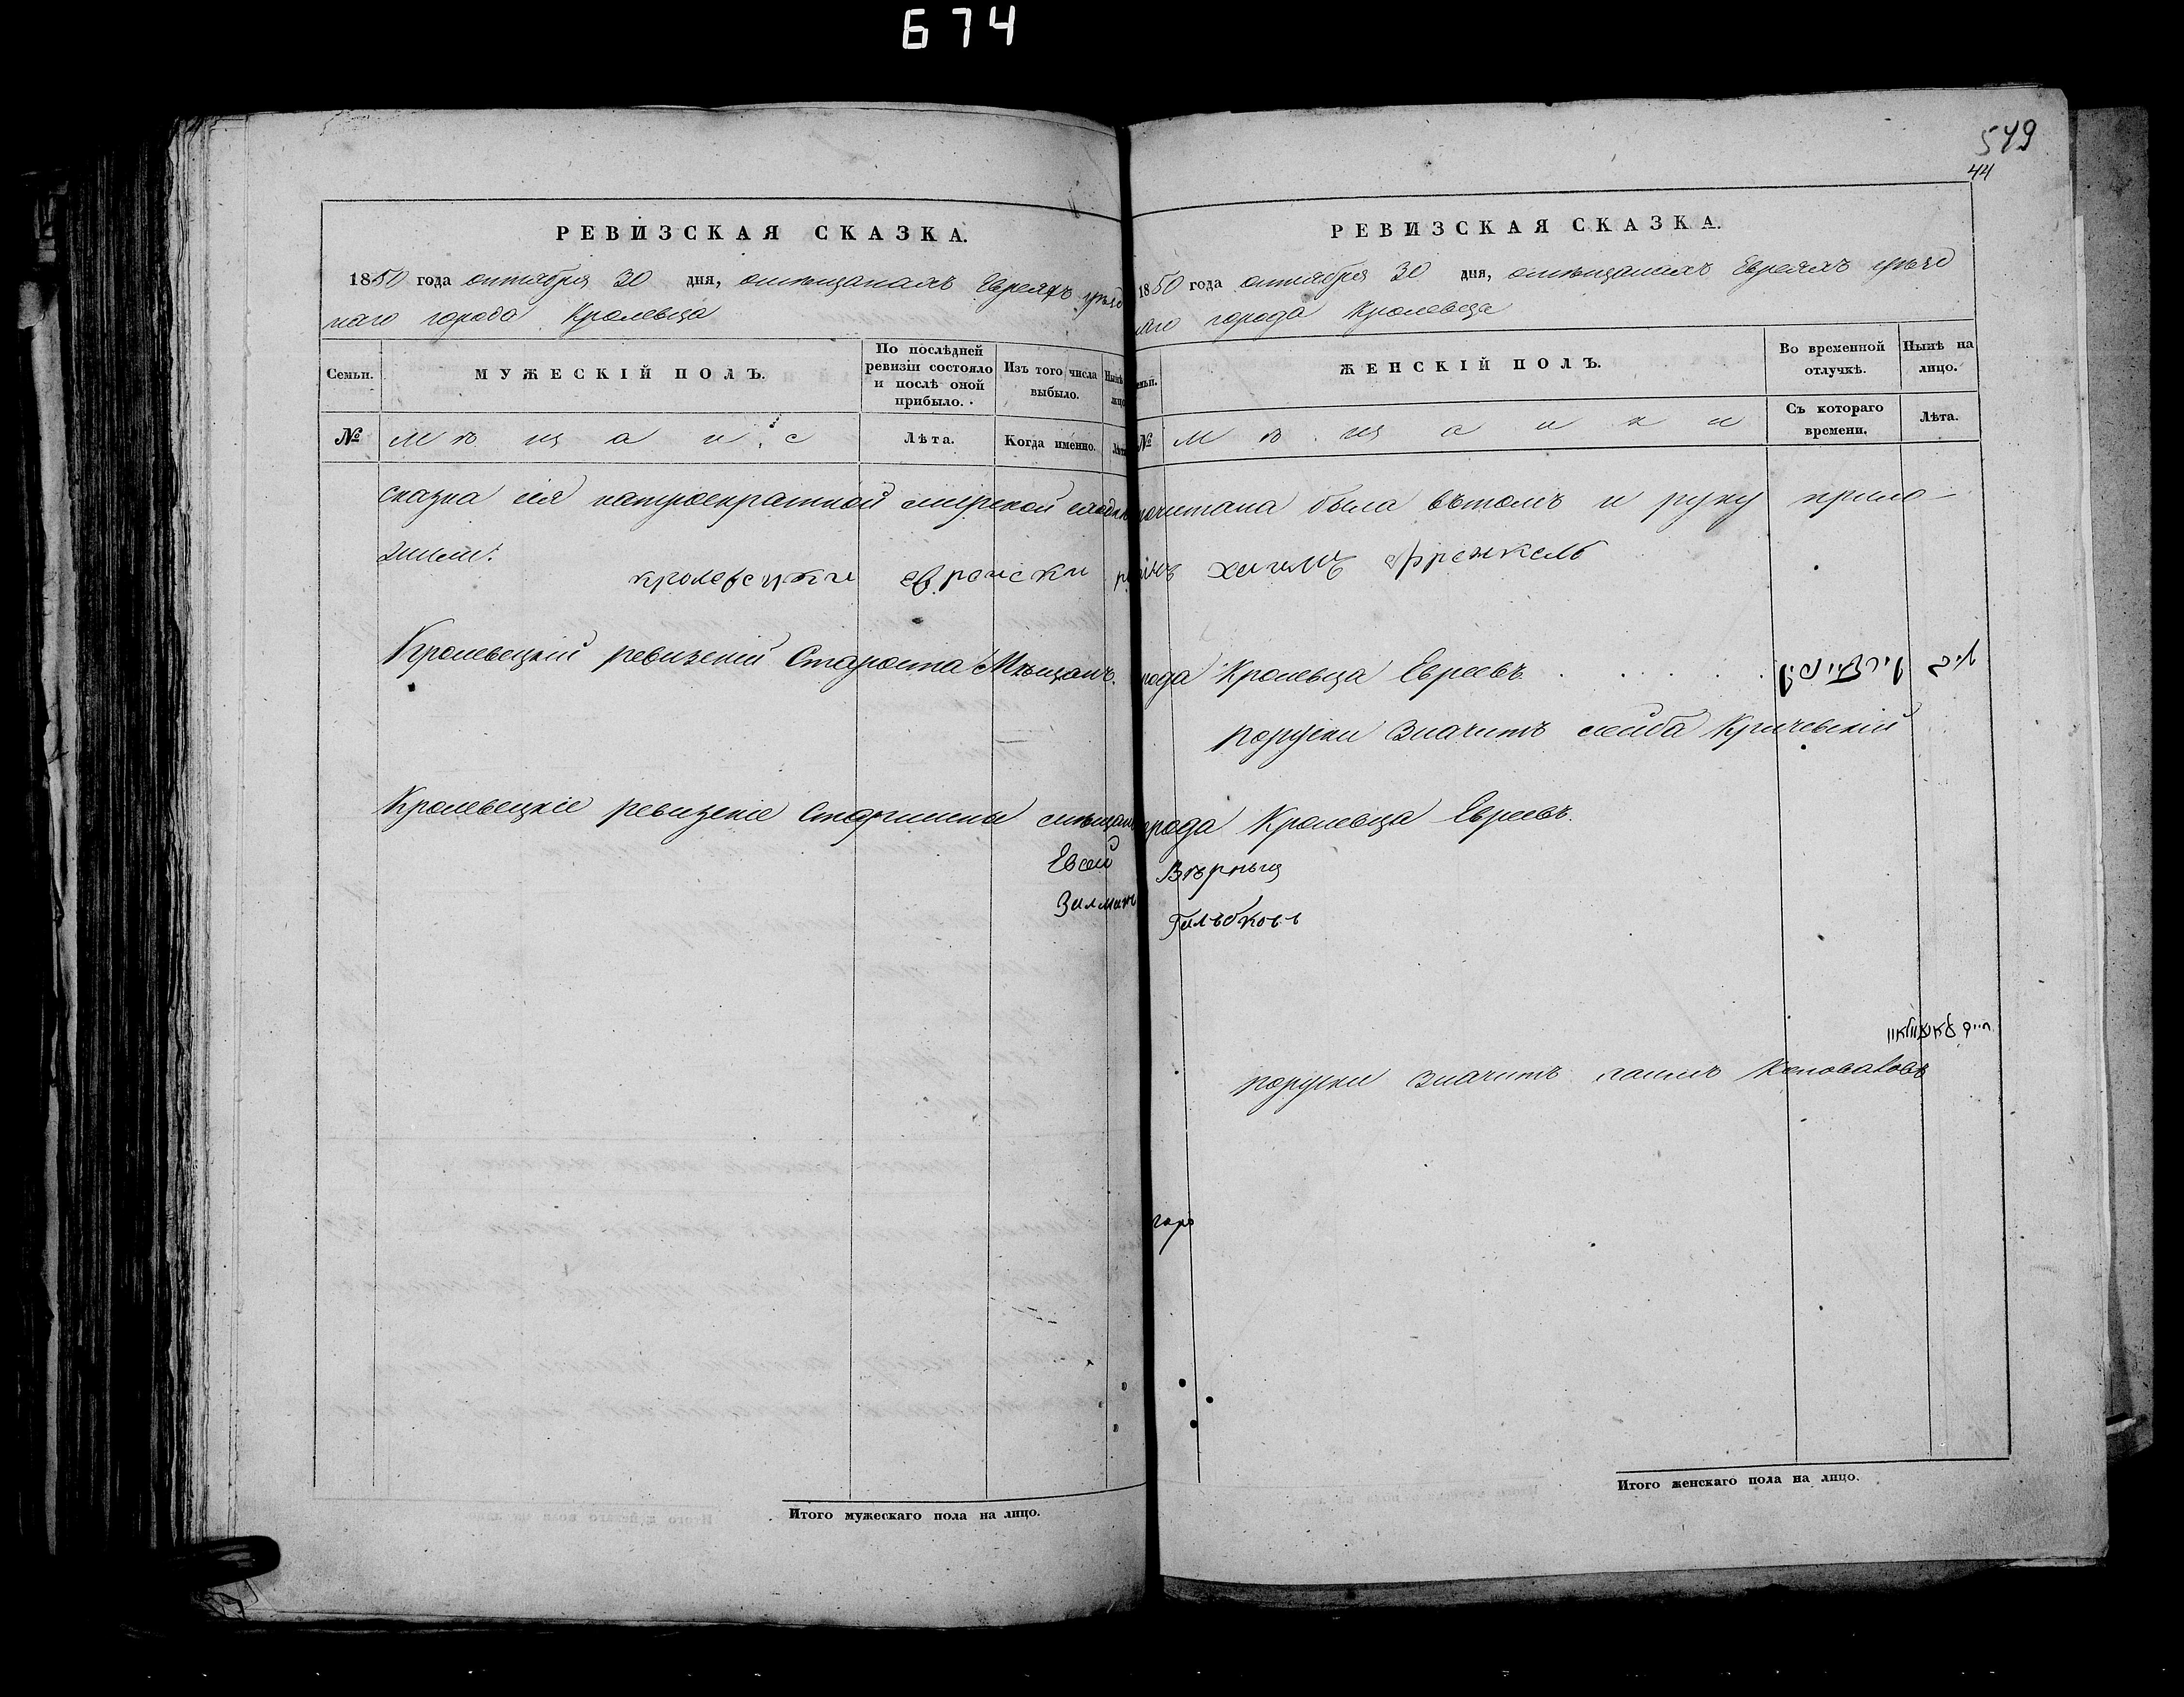 674
549
44
РЕВИЗСКАЯ СКАЗКА.
1850 года октября 30 дня, омѣщанахъ Евреяхъ уѣзд
наго города Кролевца
Семьи.
МУЖЕСКІЙ ПОЛЪ.
По послѣдней ревизіи состояло и послѣ оной прибыло.
Изъ того числа выбыло.
№
Мѣщане
Лѣта.
Когда именно.
РЕВИЗСКАЯ СКАЗКА.
1850 года октября 30 дня, омѣщанахъ Евреяхъ уѣзд
наго города Кролевца
ЖЕНСКІЙ ПОЛЪ.
Во временной отлучкѣ.
Нынѣ на лицо.
№
Мѣщанки
Съ котораго времени.
Лѣта.
сказка сія мирской сходкѣ читана была вътомъ и руку прило-
жили:
евраиски хаимъ френкель
Кролевецкій ревизскій Староста Мѣщанъ города Кролевца Евреевъ
поруски Значитъ лейба Кричевскій
Кролевецкіе ревизскіе Старшины мѣщанъ города Кролевца Евреевъ.
Евсей Вѣрныц
Залманъ
поруски значитъ хаимъ Коновалов
Итого мужескаго пола на лицо.
Итого женскаго пола на лицо.